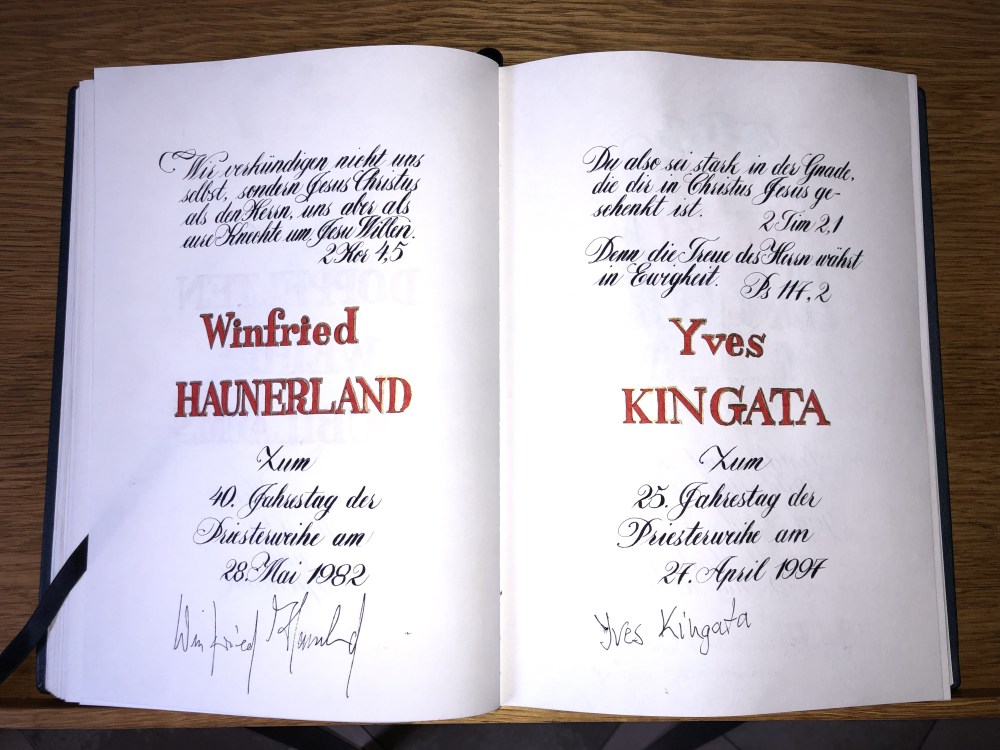 Wir verkündigen nicht uns
selbst, sondern Jesus Christus
als den Herrn, uns aber als
eure Knechte um Jesu Willen.
2 Kor 4,5
Winfried
HAUNERLAND
Zum
40. Jahrestag der
Priesterweihe am
28. Mai 1982
Winfried Haunerland
Du also sei stark in der Gnade,
die dir in Christus Jesus ge-
schenkt ist.
2 Tim 2,1
Denn die Treue des Herrn währt
in Ewigheit.
Ps 117,2
Yves
KINGATA
Zum
25. Jahrestag der
Priesterweihe am
27. April 1997
Yves Kingata